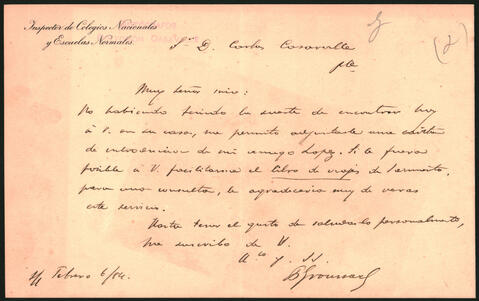 Inspector de Colegios Nacionales
y Escuelas Normales.
Sr. D. Carlos Casavalle
Pte
Muy señor mio:
No habiendo tenido la suerte de encontrar hoy
á V. en su casa, me permito adjuntarle una
de introduccion de mi amigo Lopez. Si le fuera
posible á V. facilitarme el libro de viajes de Sarmiento,
para una consulta, le agradeceria muy de veras
este servicio.
Hasta tener el gusto de saludarlo personalmente,
me suscribo de V.
Ato y SS.
P Groussac
Febrero 6/84.
(2)